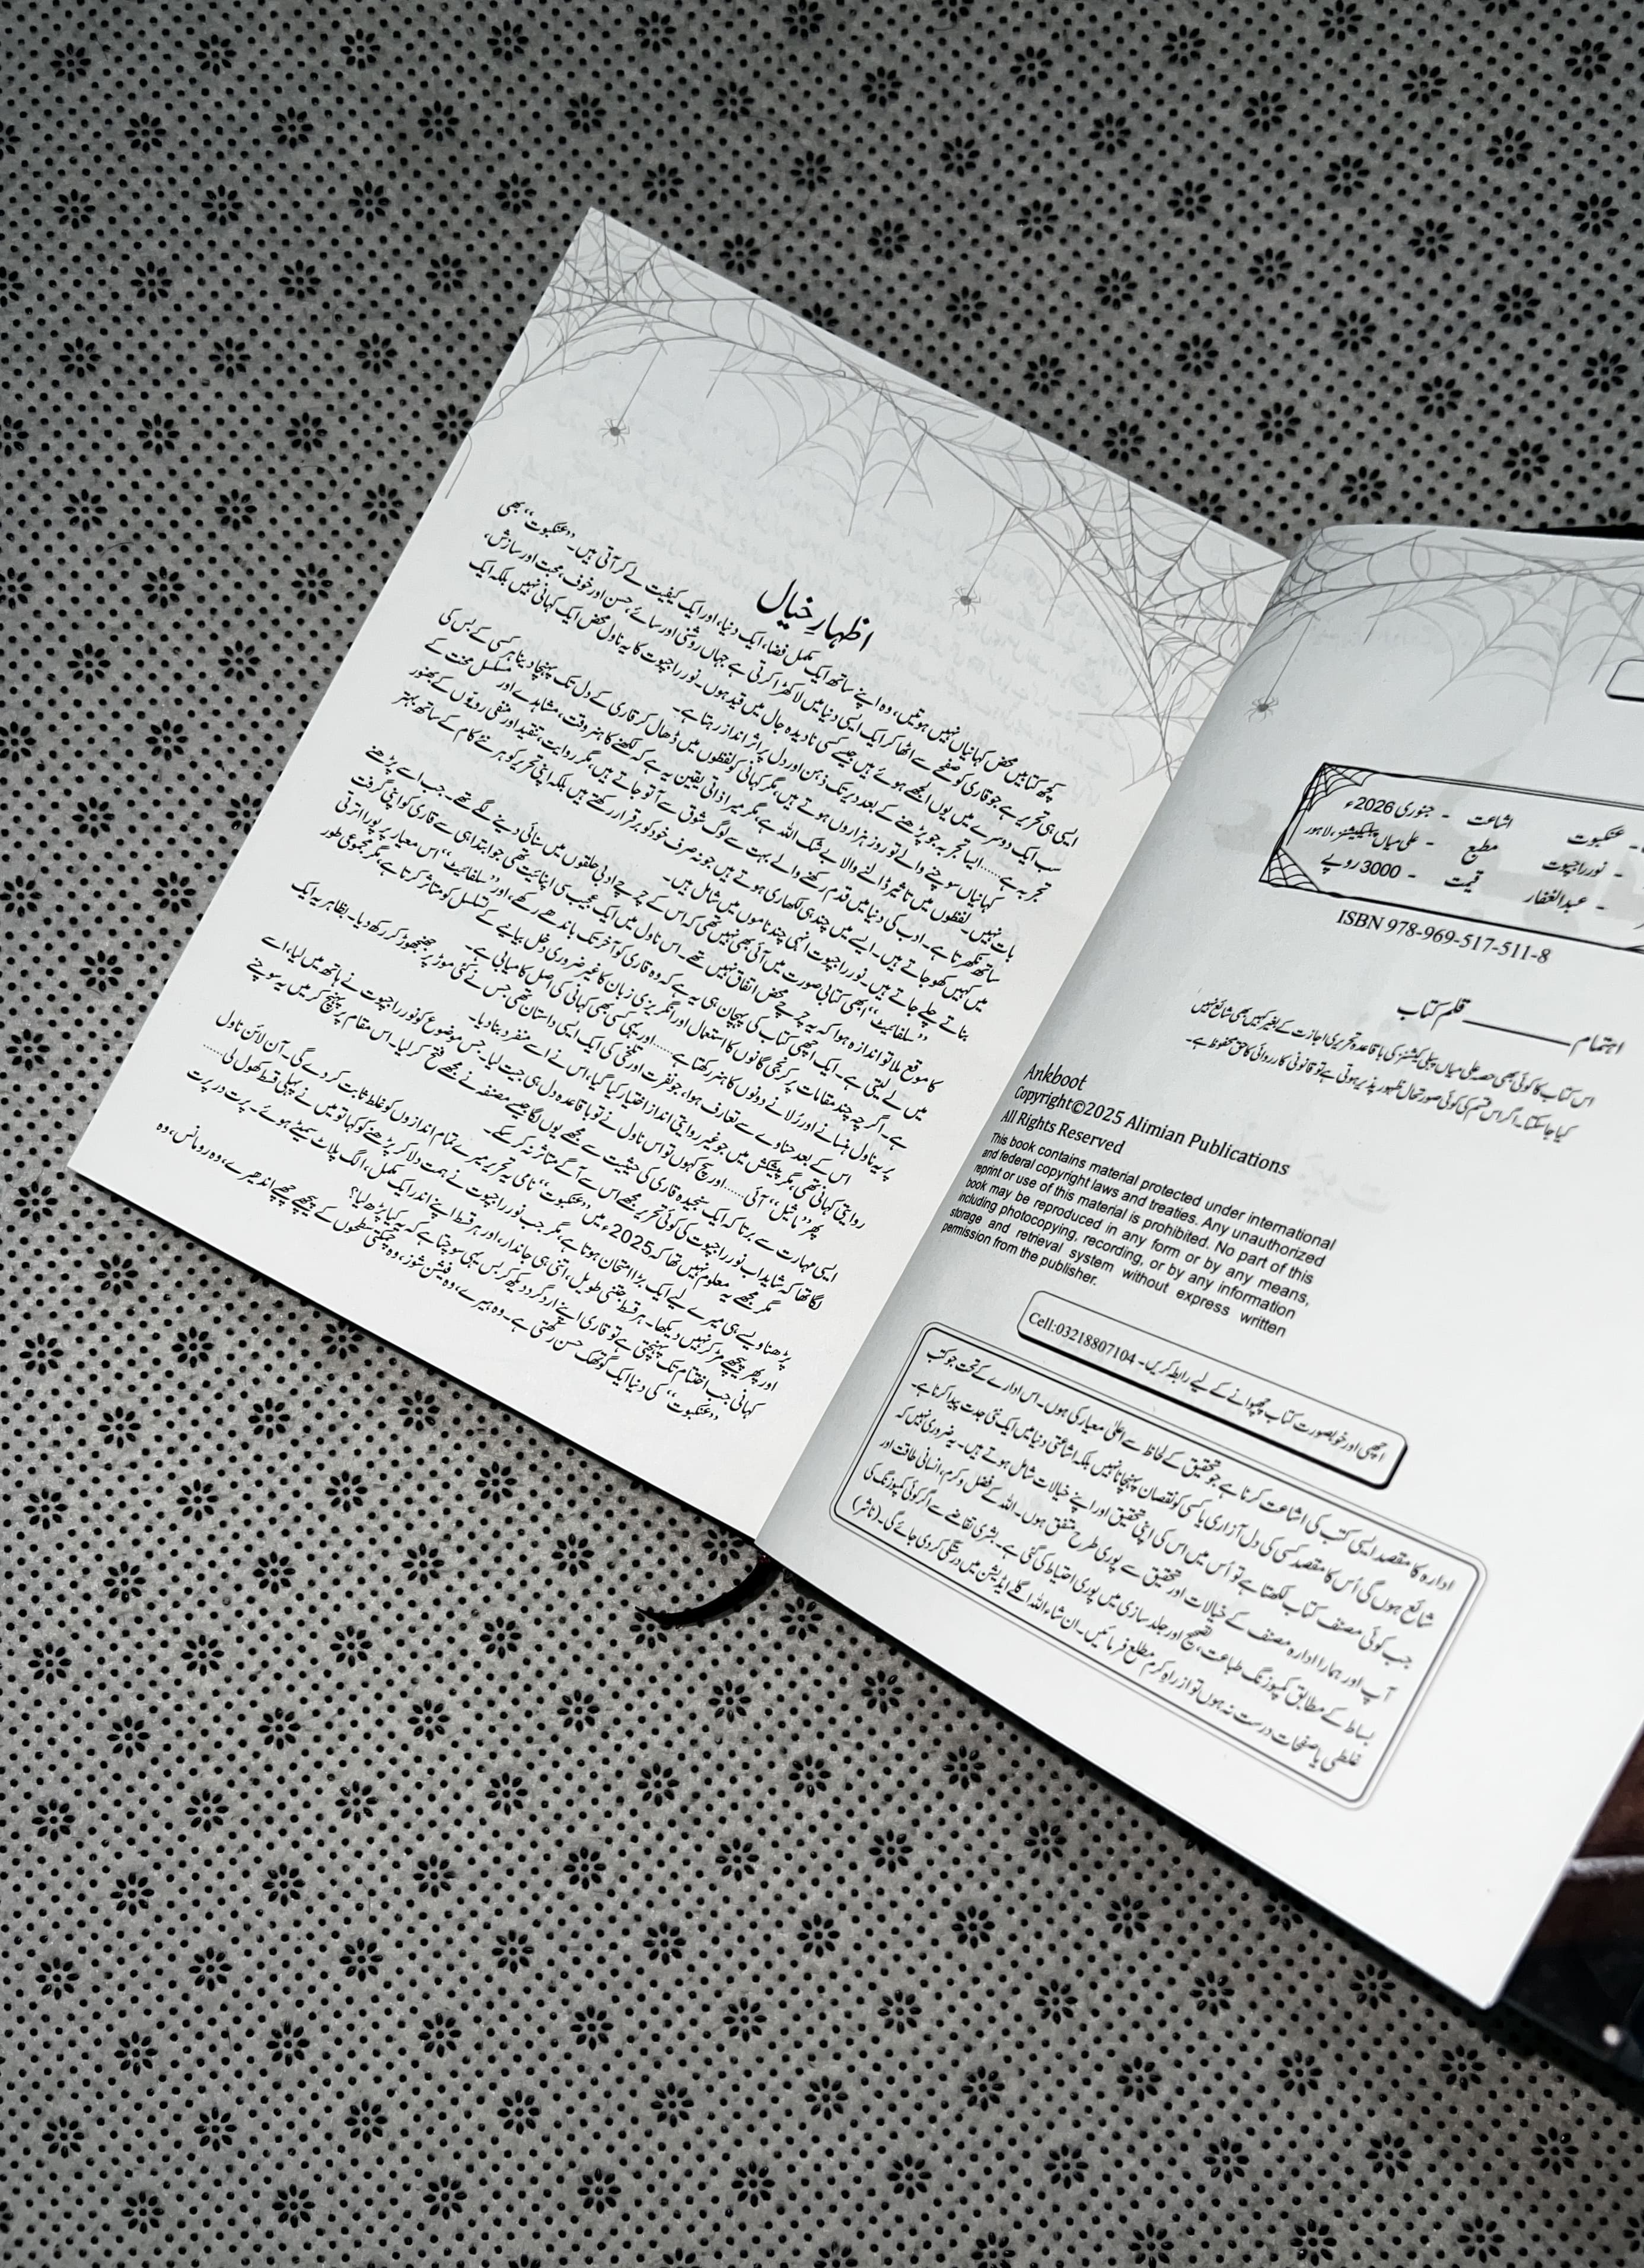 عنکبوت
نور راجپوت
عبدالغفار
اشاعت - جنوری 2026ء
مطبع - علی میاں پبلیکیشنز، لاہور
قیمت - 3000 روپے
ISBN 978-969-517-511-8
اہتمام ـــــــــ قلم کتاب
اس کتاب کا کوئی بھی حصہ علی میاں پبلی کیشنز کی باقاعدہ تحریری اجازت کے بغیر کہیں بھی شائع نہیں
کیا جاسکتا۔ اگر اس قسم کی کوئی صورتحال ظہور پذیر ہوتی ہے تو قانونی کارروائی کا حق محفوظ ہے۔
Ankboot
Copyright©2025 Alimian Publications
All Rights Reserved
This book contains material protected under international
and federal copyright laws and treaties. Any unauthorized
reprint or use of this material is prohibited. No part of this
book may be reproduced in any form or by any means,
including photocopying, recording, or by any information
storage and retrieval system without express written
permission from the publisher.
اچھی اور خوبصورت کتاب چھپوانے کے لیے رابطہ کریں۔ Cell:03218807104
ادارہ کا مقصد ایسی کتب کی اشاعت کرنا ہے جو تحقیق کے لحاظ سے اعلیٰ معیار کی ہوں۔ اس ادارے کے تحت جو کتب
شائع ہوں گی اُس کا مقصد کسی کی دل آزاری یا کسی کو نقصان پہنچانا نہیں بلکہ اشاعتی دنیا میں ایک نئی جدت پیدا کرنا ہے۔
جب کوئی مصنف کتاب لکھتا ہے تو اُس میں اس کی اپنی تحقیق اور اپنے خیالات شامل ہوتے ہیں۔ یہ ضروری نہیں کہ
آپ اور ہمارا ادارہ مصنف کے خیالات اور تحقیق سے پوری طرح متفق ہوں۔ اللہ کے فضل و کرم، انسانی طاقت اور
بساط کے مطابق کمپوزنگ طباعت، تصحیح اور جلد سازی میں پوری احتیاط کی گئی ہے۔ بشری تقاضے سے اگر کوئی کمپوزنگ کی
غلطی یا صفحات درست نہ ہوں تو از راہِ کرم مطلع فرمائیں۔ ان شاء اللہ اگلے ایڈیشن میں درستگی کردی جائے گی۔ (ناشر)
اظہارِ خیال
کچھ کتابیں محض کہانیاں نہیں ہوتیں، وہ اپنے ساتھ ایک مکمل فضا، ایک دنیا، اور ایک کیفیت لے کر آتی ہیں۔ "عنکبوت" بھی
ایسی ہی تحریر ہے جو قاری کو صفحے سے اٹھا کر ایک ایسی دنیا میں لا کھڑا کرتی ہے جہاں روشنی اور سائے، حسن اور خوف، محبت اور سازش،
سب ایک دوسرے میں یوں الجھے ہوئے ہیں جیسے کسی نادیدہ جال میں قید ہوں۔ نور راجپوت کا یہ ناول محض ایک کہانی نہیں بلکہ ایک
تجربہ ہے...... ایسا تجربہ جو پڑھنے کے بعد دیر تک ذہن اور دل پر اثر انداز رہتا ہے۔
کہانیاں سوچنے والے تو روز ہزاروں ہوتے ہیں، مگر کہانی کو لفظوں میں ڈھال کر قاری کے دل تک پہنچا دینا ہر کسی کے بس کی
بات نہیں۔ لفظوں میں تاثیر ڈالنے والا بے شک اللہ ہے، مگر میرا ذاتی یقین یہ ہے کہ لکھنے کا ہنر وقت، مشاہدے اور مسلسل محنت کے
ساتھ نکھرتا ہے۔ ادب کی دنیا میں قدم رکھنے والے بہت سے لوگ شوق سے آ تو جاتے ہیں، مگر روایت، تنقید اور منفی رویوں کے بھنور
میں کہیں کھو جاتے ہیں۔ ایسے میں چند ہی لکھاری ہوتے ہیں جو نہ صرف خود کو برقرار رکھتے ہیں بلکہ اپنی تحریر کو ہر نئے کام کے ساتھ بہتر
بناتے چلے جاتے ہیں۔ نور راجپوت انہی چند ناموں میں شامل ہیں۔
"سلفائیٹ" ابھی کتابی صورت میں آئی بھی نہیں تھی کہ اس کے چرچے ادبی حلقوں میں سنائی دینے لگے تھے۔ جب اسے پڑھنے
کا موقع ملا تو اندازہ ہوا کہ یہ چرچے محض اتفاق نہیں تھے۔ اس ناول میں ایک عجیب سی اپنائیت تھی جو ابتدا ہی سے قاری کو اپنی گرفت
میں لے لیتی ہے۔ ایک اچھی کتاب کی پہچان ہی یہ ہے کہ وہ قاری کو آخر تک باندھے رکھے، اور "سلفائیٹ" اس معیار پر پورا اترتی
ہے۔ اگرچہ چند مقامات پر کرنجی گانوں کا استعمال اور انگریزی زبان کا غیر ضروری دخل بیانیے کے تسلسل کو متاثر کرتا ہے، مگر مجموعی طور
پر یہ ناول ہنسانے اور رُلانے دونوں کا ہنر رکھتا ہے...... اور یہی کسی بھی کہانی کی اصل کامیابی ہے۔
اس کے بعد حناوے سے تعارف ہوا، جو نفرت اور تلخی کی ایک ایسی داستان تھی جس نے کئی موڑ پر جھنجھوڑ کر رکھ دیا۔ بظاہر یہ ایک
روایتی کہانی تھی، مگر پیشکش میں جو غیر روایتی انداز اختیار کیا گیا، اس نے اسے منفرد بنا دیا۔
پھر "ماثیل" آئی...... اور سچ کہوں تو اس ناول نے تو باقاعدہ دل ہی جیت لیا۔ جس موضوع کو نور راجپوت نے ہاتھ میں لیا، اسے
ایسی مہارت سے برتا کہ ایک سنجیدہ قاری کی حیثیت سے مجھے یوں لگا جیسے مصنفہ نے مجھے فتح کر لیا۔ اس مقام پر پہنچ کر میں یہ سوچنے
لگا تھا کہ شاید اب نور راجپوت کی کوئی تحریر مجھے اس سے آگے متاثر نہ کرسکے۔
مگر مجھے یہ معلوم نہیں تھا کہ 2025ء میں "عنکبوت" نامی یہ تحریر میرے تمام اندازوں کو غلط ثابت کردے گی۔ آن لائن ناول
پڑھنا ویسے ہی میرے لیے ایک بڑا امتحان ہوتا ہے، مگر جب نور راجپوت نے ہمت دلا کر پڑھنے کو کہا تو میں نے پہلی قسط کھول لی......
اور پھر پیچھے مڑ کر نہیں دیکھا۔ ہر قسط جتنی طویل، اتنی ہی جاندار، اور ہر قسط اپنے اندر ایک مکمل، الگ پلاٹ سمیٹے ہوئے۔ پرت در پرت
کہانی جب اختتام تک پہنچتی ہے تو قاری اپنے اردگرد دیکھ کر بس یہی سوچتا ہے کہ یہ کیا پڑھ لیا؟
"عنکبوت" کی دنیا ایک گوتھک حسن رکھتی ہے۔ وہ ہیرے، وہ فیشن شوز، وہ چمکتی سطحوں کے پیچھے چھپے اندھیرے، وہ رومانس، وہ